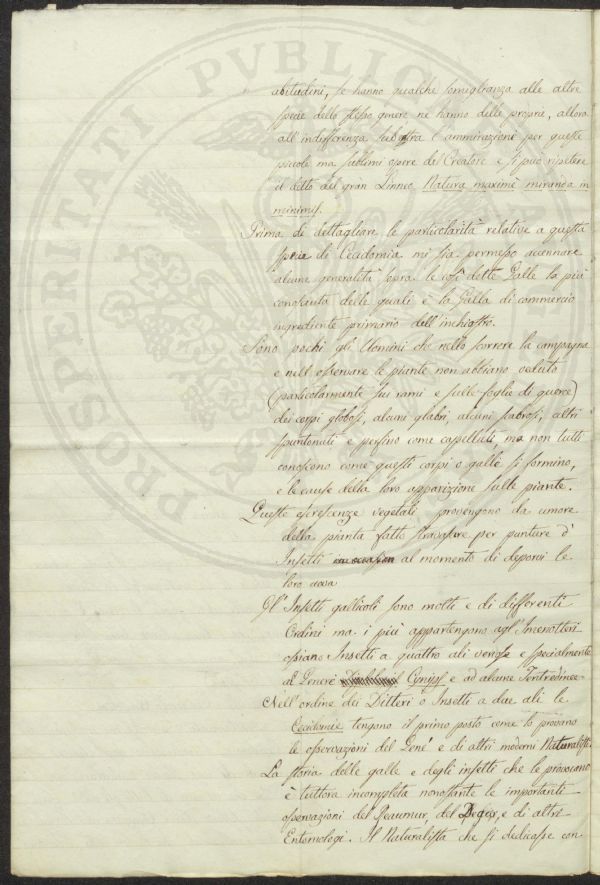 PROSPERITATI PUBLICAE
abitudini, se hanno qualche somiglianza alle altre
specie dello stesso genere ne hanno delle proprie, allora
all'indifferenza subentra l'ammirazione per queste
piccole ma sublimi opere del Creatore e si può ripetere
il detto del gran Linneo Natura maximè miranda in
minimis.
Prima di dettagliare le particolarità relative a questa
specie di Cecidomia mi sia permesso accennare
alcune generalità sopra le così dette Galle la più
conosciuta delle quali è la Galla di commercio
ingrediente primario dell'inchiostro.
Sono pochi gli Uomini che nello scorrere la campagna
e nell'osservare le piante non abbiano veduto
(particolarmente sui rami e sulle foglie di querce)
dei corpi globosi, alcuni glabri, alcuni scabrosi, altri
spuntonati e persino come capelluti, ma non tutti
conoscono come questi corpi o galle si formino,
e le cause della loro apparizione sulle piante.
Queste escrescenze vegetali provengono da umore
della pianta fatto stravasare per punture d'
Insetti al momento di deporvi le
loro uova
Gl'Insetti gallicoli sono molti e di differenti
Ordini ma i più appartengono agl'Imenotteri
ossiano Insetti a quattro ali venose e specialmente
al Genere Cynips e ad alcune Tentredinee.
Nell'ordine dei Ditteri o Insetti a due ali le
Cecidomie tengono il primo posto come lo provano
le osservazioni del Gené e di altri moderni Naturalisti.
La storia delle galle e degli insetti che le provocano
è tuttora incompleta nonostante le importanti
osservazioni del Reaumur, del Degeer, e di altri
Entomologi. Il Naturalista che si dedicasse con